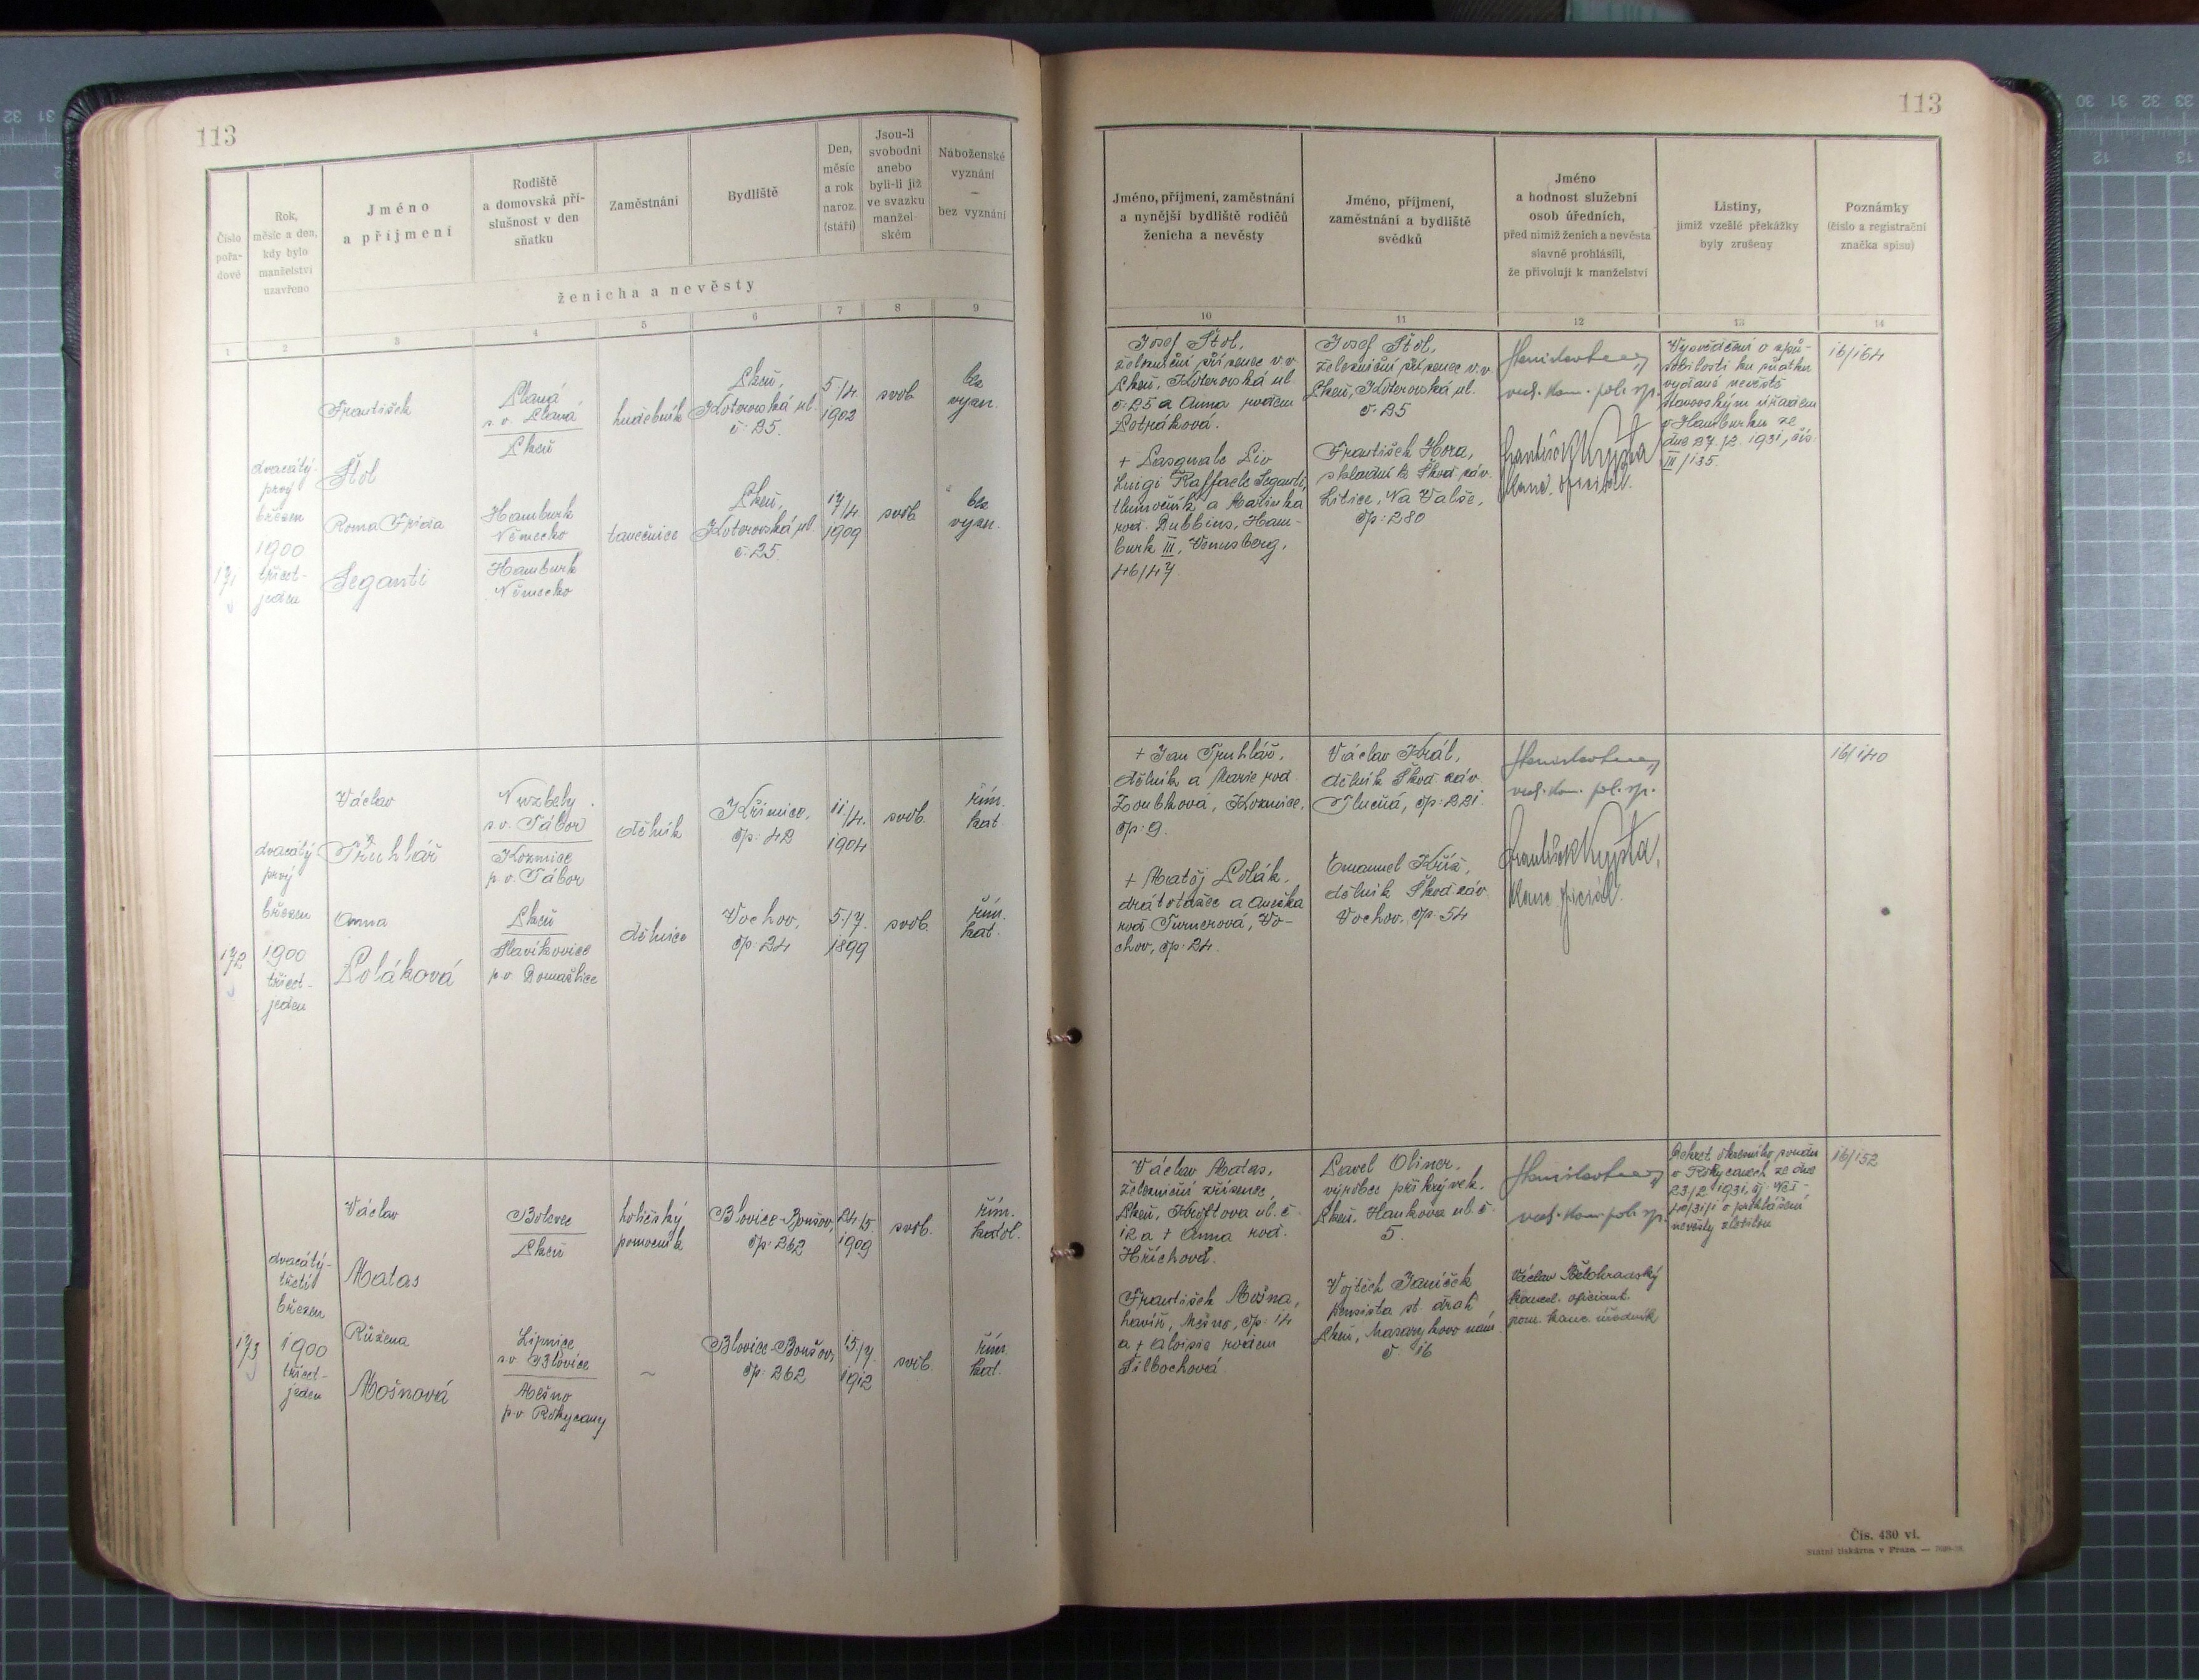 113
Číslo
pořa-
dové
Rok,
měsíc a den,
kdy bylo
manželství
uzavřeno
Jméno
a příjmení
Rodiště
a domovská pří-
slušnost v den
sňatku
Zaměstnání
Bydliště
Den,
měsíc
a rok
naroz.
(stáří)
Jsou-li
svobodni
anebo
byli-li již
ve svazku
manžel-
ském
Náboženské
vyznání
—
bez vyznání
ženicha a nevěsty
1 2 3 4 5 6 7 8 9
171
dvacátý-
prvý
březen
1900
třicet-
jeden
František
Štol
Roma Frida
Seganti
Planá
s.o. Planá
Plzeň
Hamburk
Německo
Hamburk
Německo
hudebník
tanečnice
Plzeň,
Koterovská ul.
č. 25.
Plzeň,
Koterovská ul.
č. 25.
5./4.
1902
17/4
1909
svob.
svob.
bez
vyzn.
bez
vyzn.
172
dvacátý
prvý
březen
1900
třicet-
jeden
Václav
Truhlář
Anna
Poláková
s.o. Tábor
Kozmice
p.o. Tábor
Plzeň
Slavíkovice
p.o. Domažlice
dělník
dělnice
Křimice,
čp. 42
Vochov,
čp. 24
11./4.
1904
5./7.
1899
svob.
svob.
řím.
kat.
řím.
kat.
173
dvacátý-
třetí
březen
1900
třicet-
jeden
Václav
Matas
Růžena
Mošnová
Bolevec
Plzeň
Lipnice
s.o. Blovice
Mešno
p.o. Rokycany
holičský
pomocník
~
Blovice-Boušov,
čp. 262
Blovice-Boušov,
čp. 262
24/5
1909
15./7.
1912
svob.
svob.
řím.
katol.
řím.
kat.
113
Jméno, příjmení, zaměstnání
a nynější bydliště rodičů
ženicha a nevěsty
Jméno, příjmení,
zaměstnání a bydliště
svědků
Jméno
a hodnost služební
osob úředních,
před nimiž ženich a nevěsta
slavně prohlásili,
že přivolují k manželství
Listiny,
jimiž vzešlé překážky
byly zrušeny
Poznámky
(číslo a registrační
značka spisu)
10 11 12 13 14
Josef Štol,
železniční zřízenec v.v.
Plzeň, Koterovská ul.
č. 25 a Anna rodem
Petráková.
+ Pasquale Pio
Luigi Raffaele Seganti,
tlumočník a Malinka
rod. Dubbins, Ham-
burk III, Venusberg,
46/47
Josef Štol,
železniční zřízenec v.v.
Plzeň, Koterovská ul.
č. 25
František Hora,
skladník Škod. záv.
Litice, Na Valše,
čp. 280
ved. kom. pol. sp.
František Krysta
kanc. oficiál.
Vysvědčení o způ-
sobilosti ku sňatku
vydané nevěstě
stavovským úřadem
v Hamburku ze
dne 27./2. 1931, čís.
III/135.
16/164
+ Jan Truhlář,
dělník a Marie rod.
Zoubková, Kozmice,
čp. 9.
+ Matěj Polák,
drátotažec a Anežka
rod. Turnerová, Vo-
chov, čp. 24.
Václav Král,
dělník Škod. záv.
Tlučná, čp. 221
Emanuel Kříž,
dělník Škod. záv.
Vochov, čp. 54
ved. kom. pol. sp.
František Krysta,
kanc. oficiál.
16/140
Václav Matas,
železniční zřízenec,
Plzeň, Kryftova ul. č.
12 a + Anna rod.
Hříchová.
František Mošna,
havíř, Mešno, čp. 14
a + Aloisie rodem
Šilbochová
Pavel Oliner,
výrobce přikrývek.
Plzeň, Hankova ul. č.
5.
Vojtěch Janíček
pensista st. drah
Plzeň, Masarykovo nám.
č. 16
ved. kom. pol. sp.
Václav Bělohradský
kancel. oficiant
pom. kanc. úředník
Dekret okresního soudu
v Rokycanech ze dne
23/2 1931, čj.
nevěsty zletilou
16/152
Čís. 430 vl.
Státní tiskárna v Praze. —